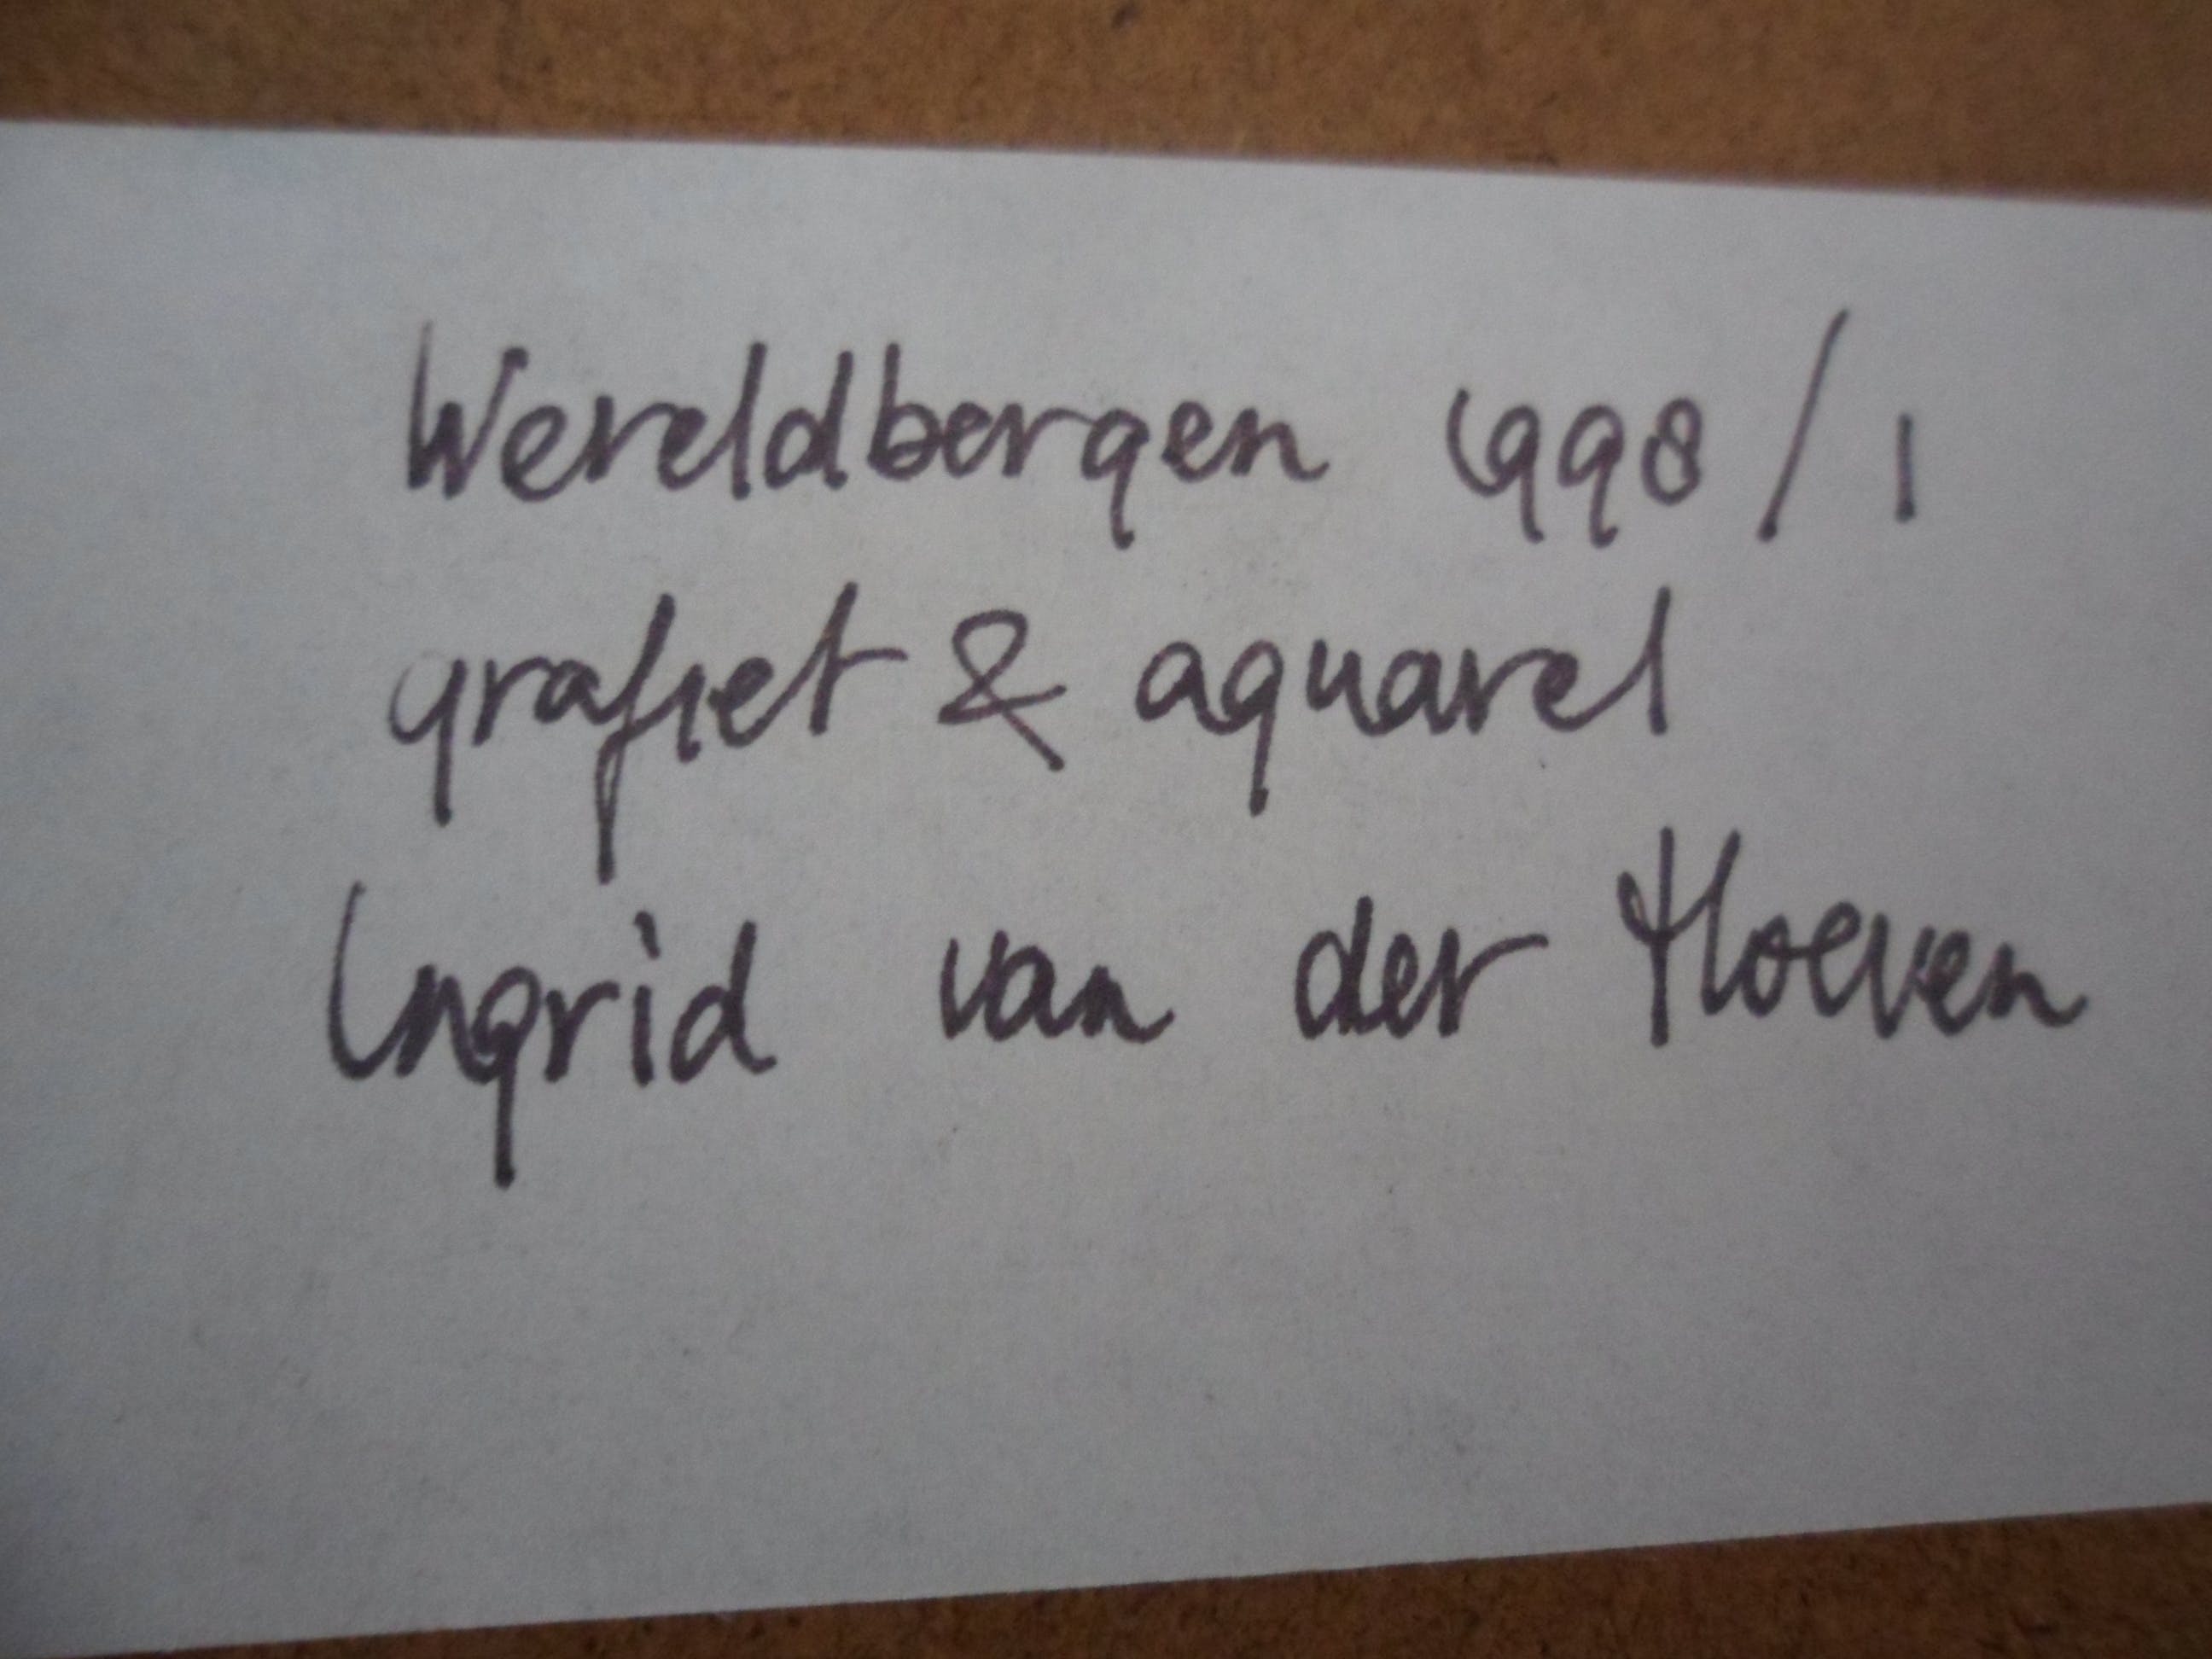 Wereldbergen 1998 / 1
grafiet & aquarel
Ingrid van der Hoeven